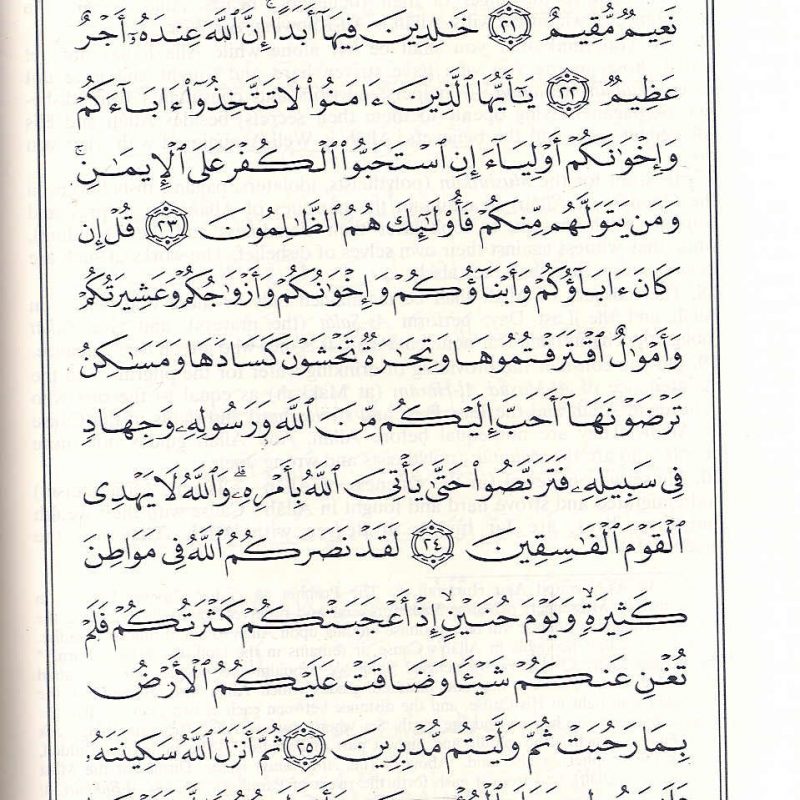 نَعِيمٌ مُّقِيمٌ ۝٢١ خَٰلِدِينَ فِيهَآ أَبَدًا ۚ إِنَّ ٱللَّهَ عِندَهُۥٓ أَجْرٌ
عَظِيمٌ ۝٢٢ يَٰٓأَيُّهَا ٱلَّذِينَ ءَامَنُوا۟ لَا تَتَّخِذُوٓا۟ ءَابَآءَكُمْ
وَإِخْوَٰنَكُمْ أَوْلِيَآءَ إِنِ ٱسْتَحَبُّوا۟ ٱلْكُفْرَ عَلَى ٱلْإِيمَٰنِ ۚ
وَمَن يَتَوَلَّهُم مِّنكُمْ فَأُو۟لَٰٓئِكَ هُمُ ٱلظَّٰلِمُونَ ۝٢٣ قُلْ إِن
كَانَ ءَابَآؤُكُمْ وَأَبْنَآؤُكُمْ وَإِخْوَٰنُكُمْ وَأَزْوَٰجُكُمْ وَعَشِيرَتُكُمْ
وَأَمْوَٰلٌ ٱقْتَرَفْتُمُوهَا وَتِجَٰرَةٌ تَخْشَوْنَ كَسَادَهَا وَمَسَٰكِنُ
تَرْضَوْنَهَآ أَحَبَّ إِلَيْكُم مِّنَ ٱللَّهِ وَرَسُولِهِۦ وَجِهَادٍ
فِى سَبِيلِهِۦ فَتَرَبَّصُوا۟ حَتَّىٰ يَأْتِىَ ٱللَّهُ بِأَمْرِهِۦ ۗ وَٱللَّهُ لَا يَهْدِى
ٱلْقَوْمَ ٱلْفَٰسِقِينَ ۝٢٤ لَقَدْ نَصَرَكُمُ ٱللَّهُ فِى مَوَاطِنَ
كَثِيرَةٍ ۙ وَيَوْمَ حُنَيْنٍ ۙ إِذْ أَعْجَبَتْكُمْ كَثْرَتُكُمْ فَلَمْ
تُغْنِ عَنكُمْ شَيْـًٔا وَضَاقَتْ عَلَيْكُمُ ٱلْأَرْضُ
بِمَا رَحُبَتْ ثُمَّ وَلَّيْتُم مُّدْبِرِينَ ۝٢٥ ثُمَّ أَنزَلَ ٱللَّهُ سَكِينَتَهُۥ